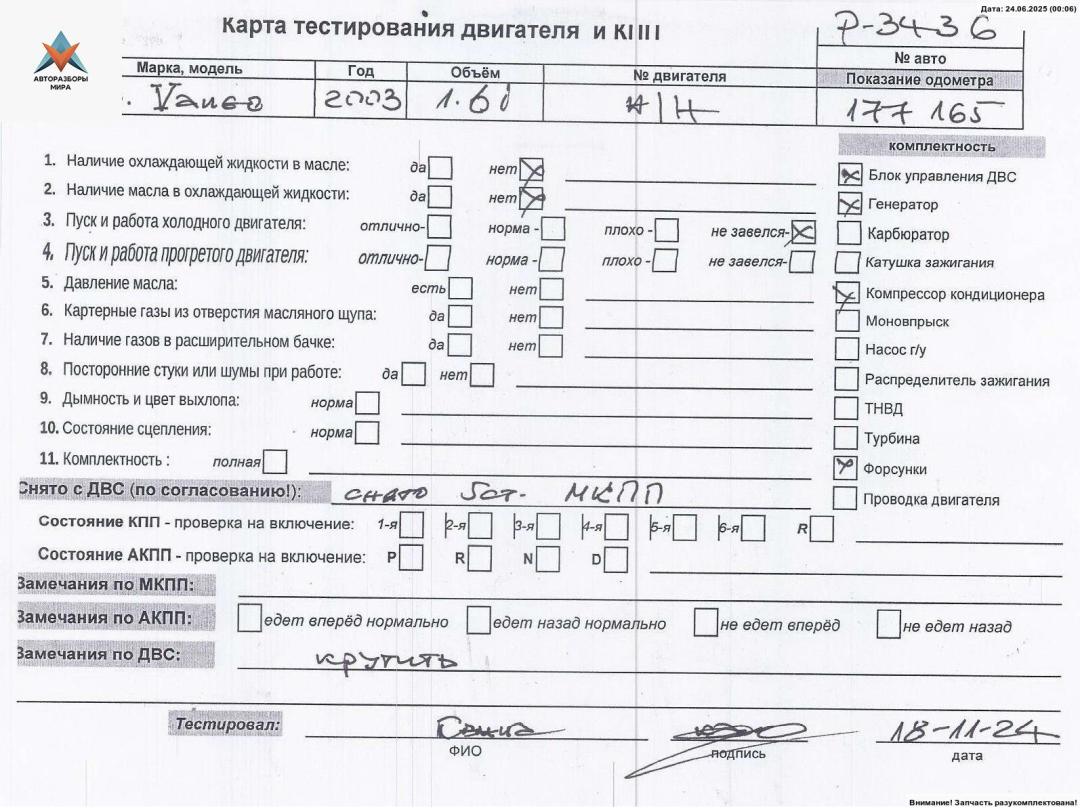 Дата: 24.06.2025 (00:06)
Карта тестирования двигателя и КПП
P-3436
№ авто
АВТОРАЗБОРЫ
МИРА
Марка, модель Год Объём № двигателя Показание одометра
Vaneo 2003 1.6i Н/Н 177 165
комплектность
1. Наличие охлаждающей жидкости в масле: да нет
2. Наличие масла в охлаждающей жидкости: да нет
3. Пуск и работа холодного двигателя: отлично- норма - плохо - не завелся-
4. Пуск и работа прогретого двигателя: отлично- норма - плохо - не завелся-
5. Давление масла: есть нет
6. Картерные газы из отверстия масляного щупа: да нет
7. Наличие газов в расширительном бачке: да нет
8. Посторонние стуки или шумы при работе: да нет
9. Дымность и цвет выхлопа: норма
10. Состояние сцепления: норма
11. Комплектность : полная
Блок управления ДВС
Генератор
Карбюратор
Катушка зажигания
Компрессор кондиционера
Моновпрыск
Насос г/у
Распределитель зажигания
ТНВД
Турбина
Форсунки
Проводка двигателя
Снято с ДВС (по согласованию!): снято 5ст. МКПП
Состояние КПП - проверка на включение: 1-я 2-я 3-я 4-я 5-я 6-я R
Состояние АКПП - проверка на включение: P R N D
Замечания по МКПП:
Замечания по АКПП: едет вперёд нормально едет назад нормально не едет вперёд не едет назад
Замечания по ДВС: крутить
Тестировал: 18-11-24
ФИО подпись дата
Внимание! Запчасть разукомплектована!